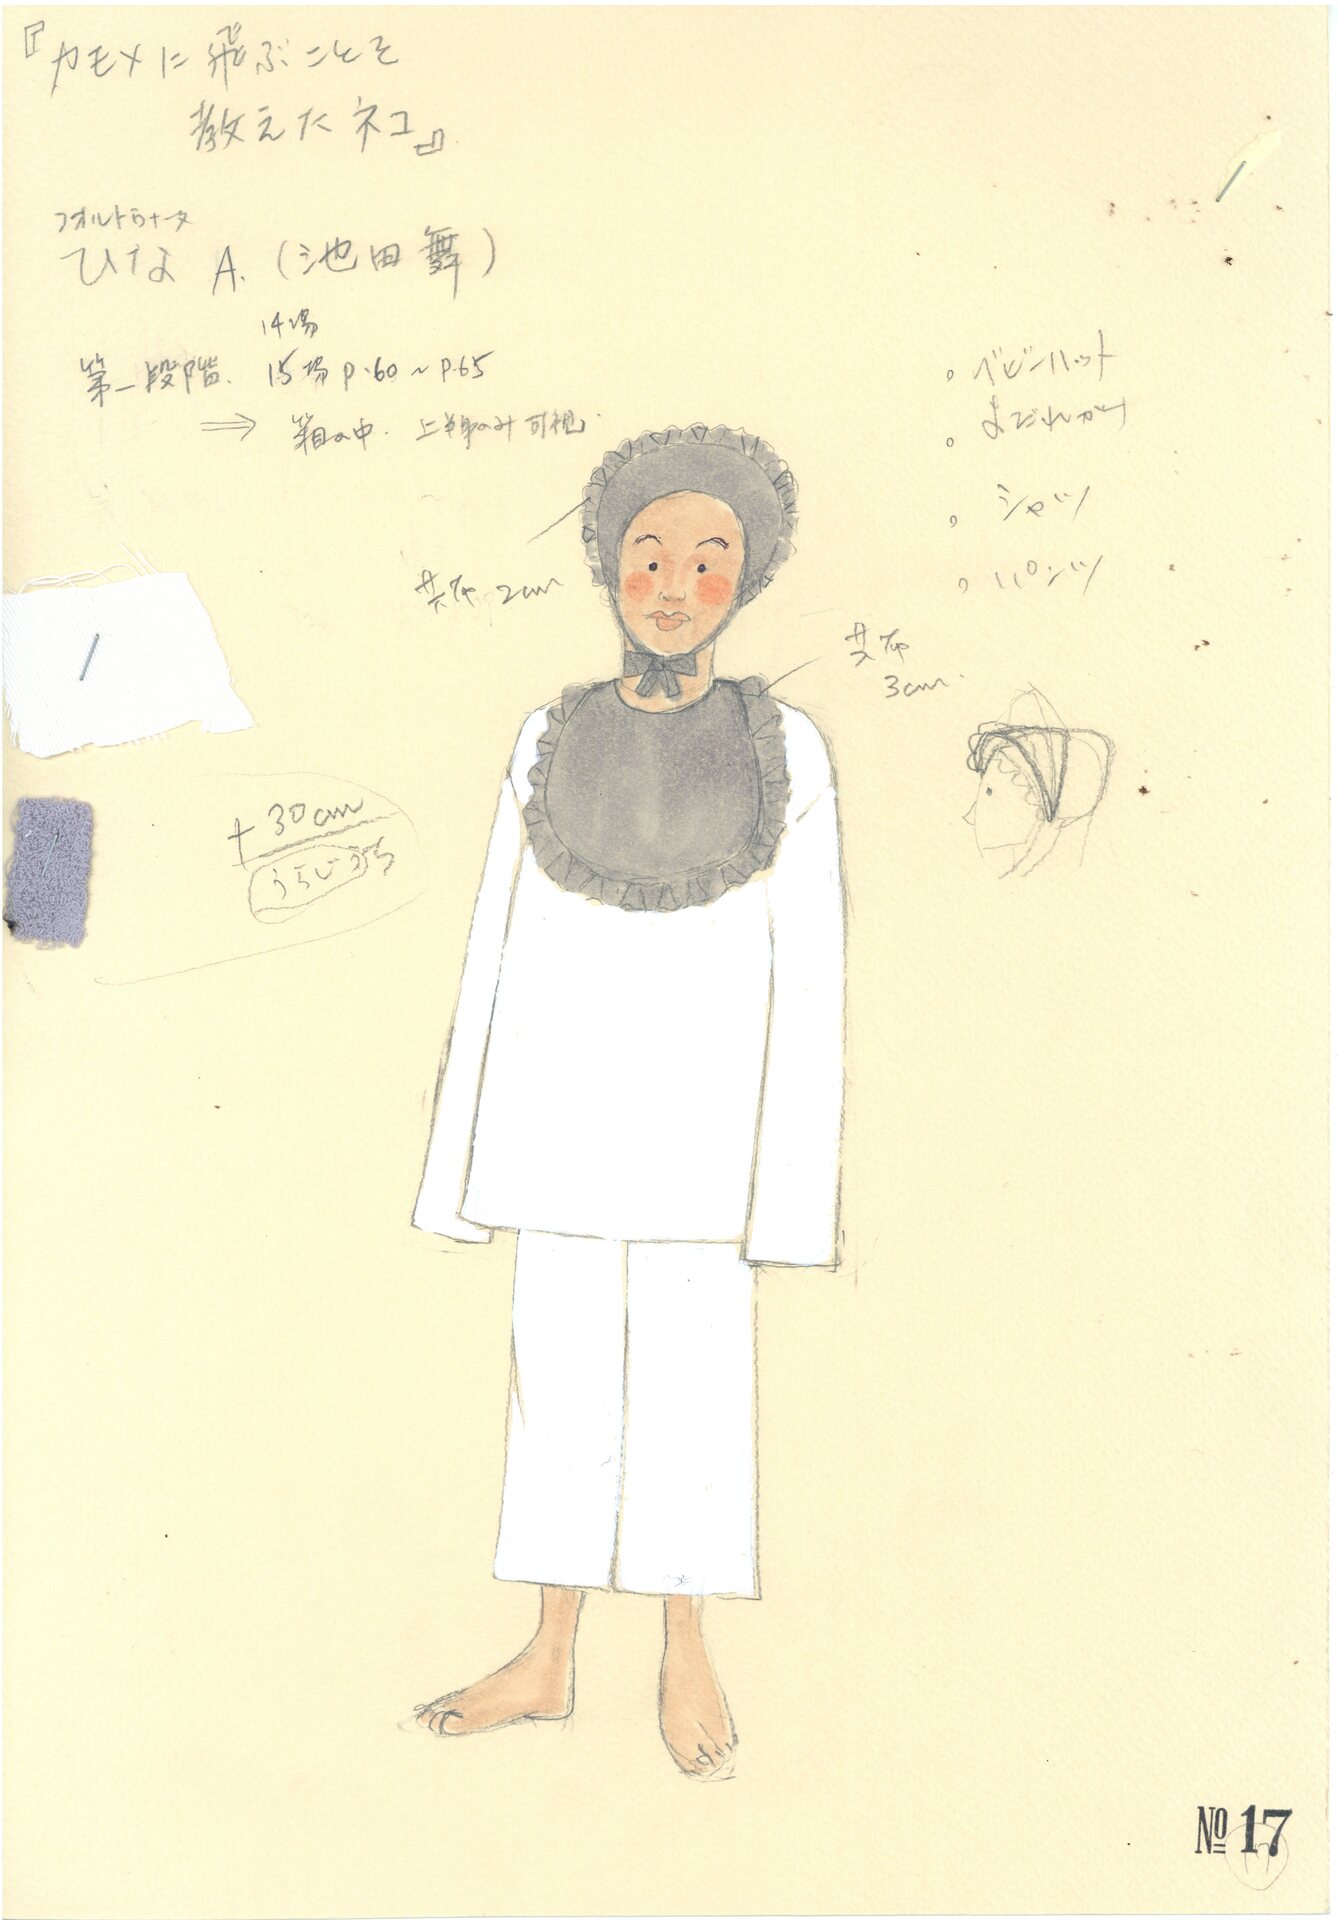 『カモメに飛ぶことを
教えたネコ』
フォルトゥナータ
ひな A. (池田舞)
14場
第一段階. 15場 P.60～P.65
⇒ 箱の中. 上半身のみ可視.
。ベビーハット
。よだれかけ
。シャツ
。パンツ
共布 2cm
共布
3cm.
+30cm
うらじうち
№17
17